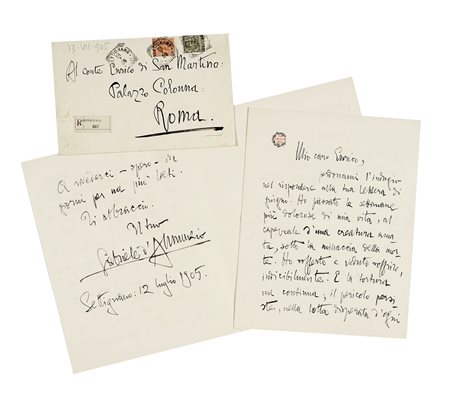 13·VII·905
Al conte Enrico di San Martino
Palazzo Colonna
Roma.
R SETTIGNANO
807
A rivederci – spero – in
giorni per noi più lieti.
Ti abbraccio.
Il tuo
Gabriele d'Annunzio
Settignano: 12 luglio 1905.
Mio caro Enrico,
perdonami l'indugio
nel rispondere alla tua lettera di
giugno. Ho passato le settimane
più dolorose di mia vita, al
capezzale d'una creatura ama-
ta, sotto la minaccia della mor-
te. Ho sofferto e veduto soffrire,
indicibilmente. E la tortura
mi continua; il pericolo persi-
ste, nella lotta disperata d'ogni